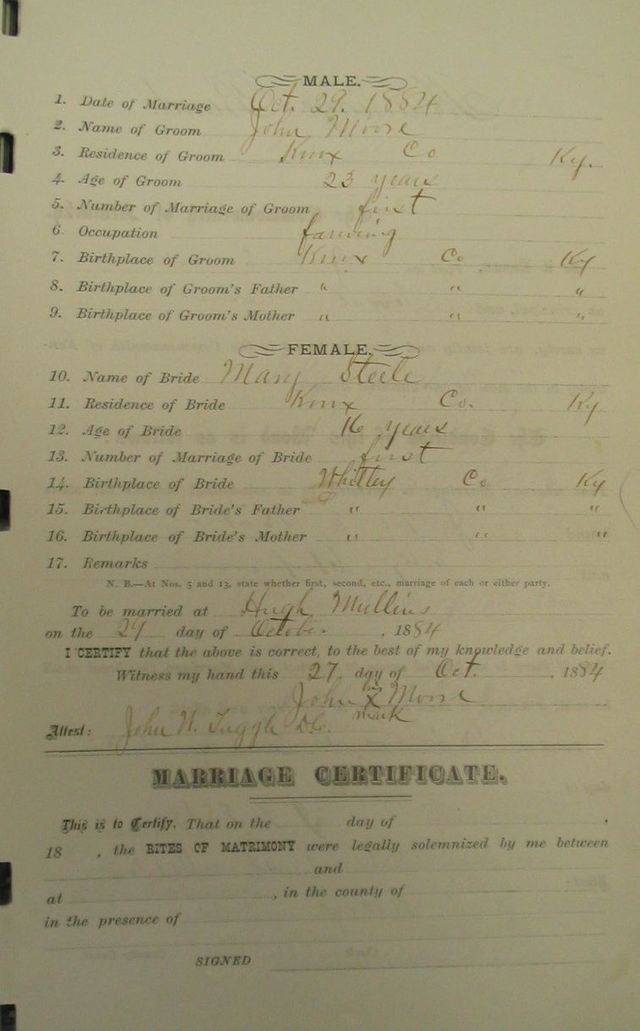 MALE.
1. Date of Marriage Oct. 29. 1884
2. Name of Groom John Moore
3. Residence of Groom Knox Co Ky.
4. Age of Groom 23 years
5. Number of Marriage of Groom first
6. Occupation farming
7. Birthplace of Groom Knox Co Ky
8. Birthplace of Groom's Father " " "
9. Birthplace of Groom's Mother " " "
FEMALE.
10. Name of Bride Mary Steele
11. Residence of Bride Knox Co. Ky
12. Age of Bride 16 years
13. Number of Marriage of Bride first
14. Birthplace of Bride Whitley Co Ky
15. Birthplace of Bride's Father " " "
16. Birthplace of Bride's Mother " " "
17. Remarks
N. B.—At Nos. 5 and 13, state whether first, second, etc., marriage of each or either party.
To be married at Hugh Mullins
on the 29 day of October. , 1884
I CERTIFY that the above is correct, to the best of my knowledge and belief.
Witness my hand this 27. day of Oct. , 1884
John his X Moore
mark
Attest: John W. Tuggle D.C.
MARRIAGE CERTIFICATE.
This is to Certify, That on the day of ,
18 , the RITES OF MATRIMONY were legally solemnized by me between
and
at , in the county of
in the presence of
SIGNED